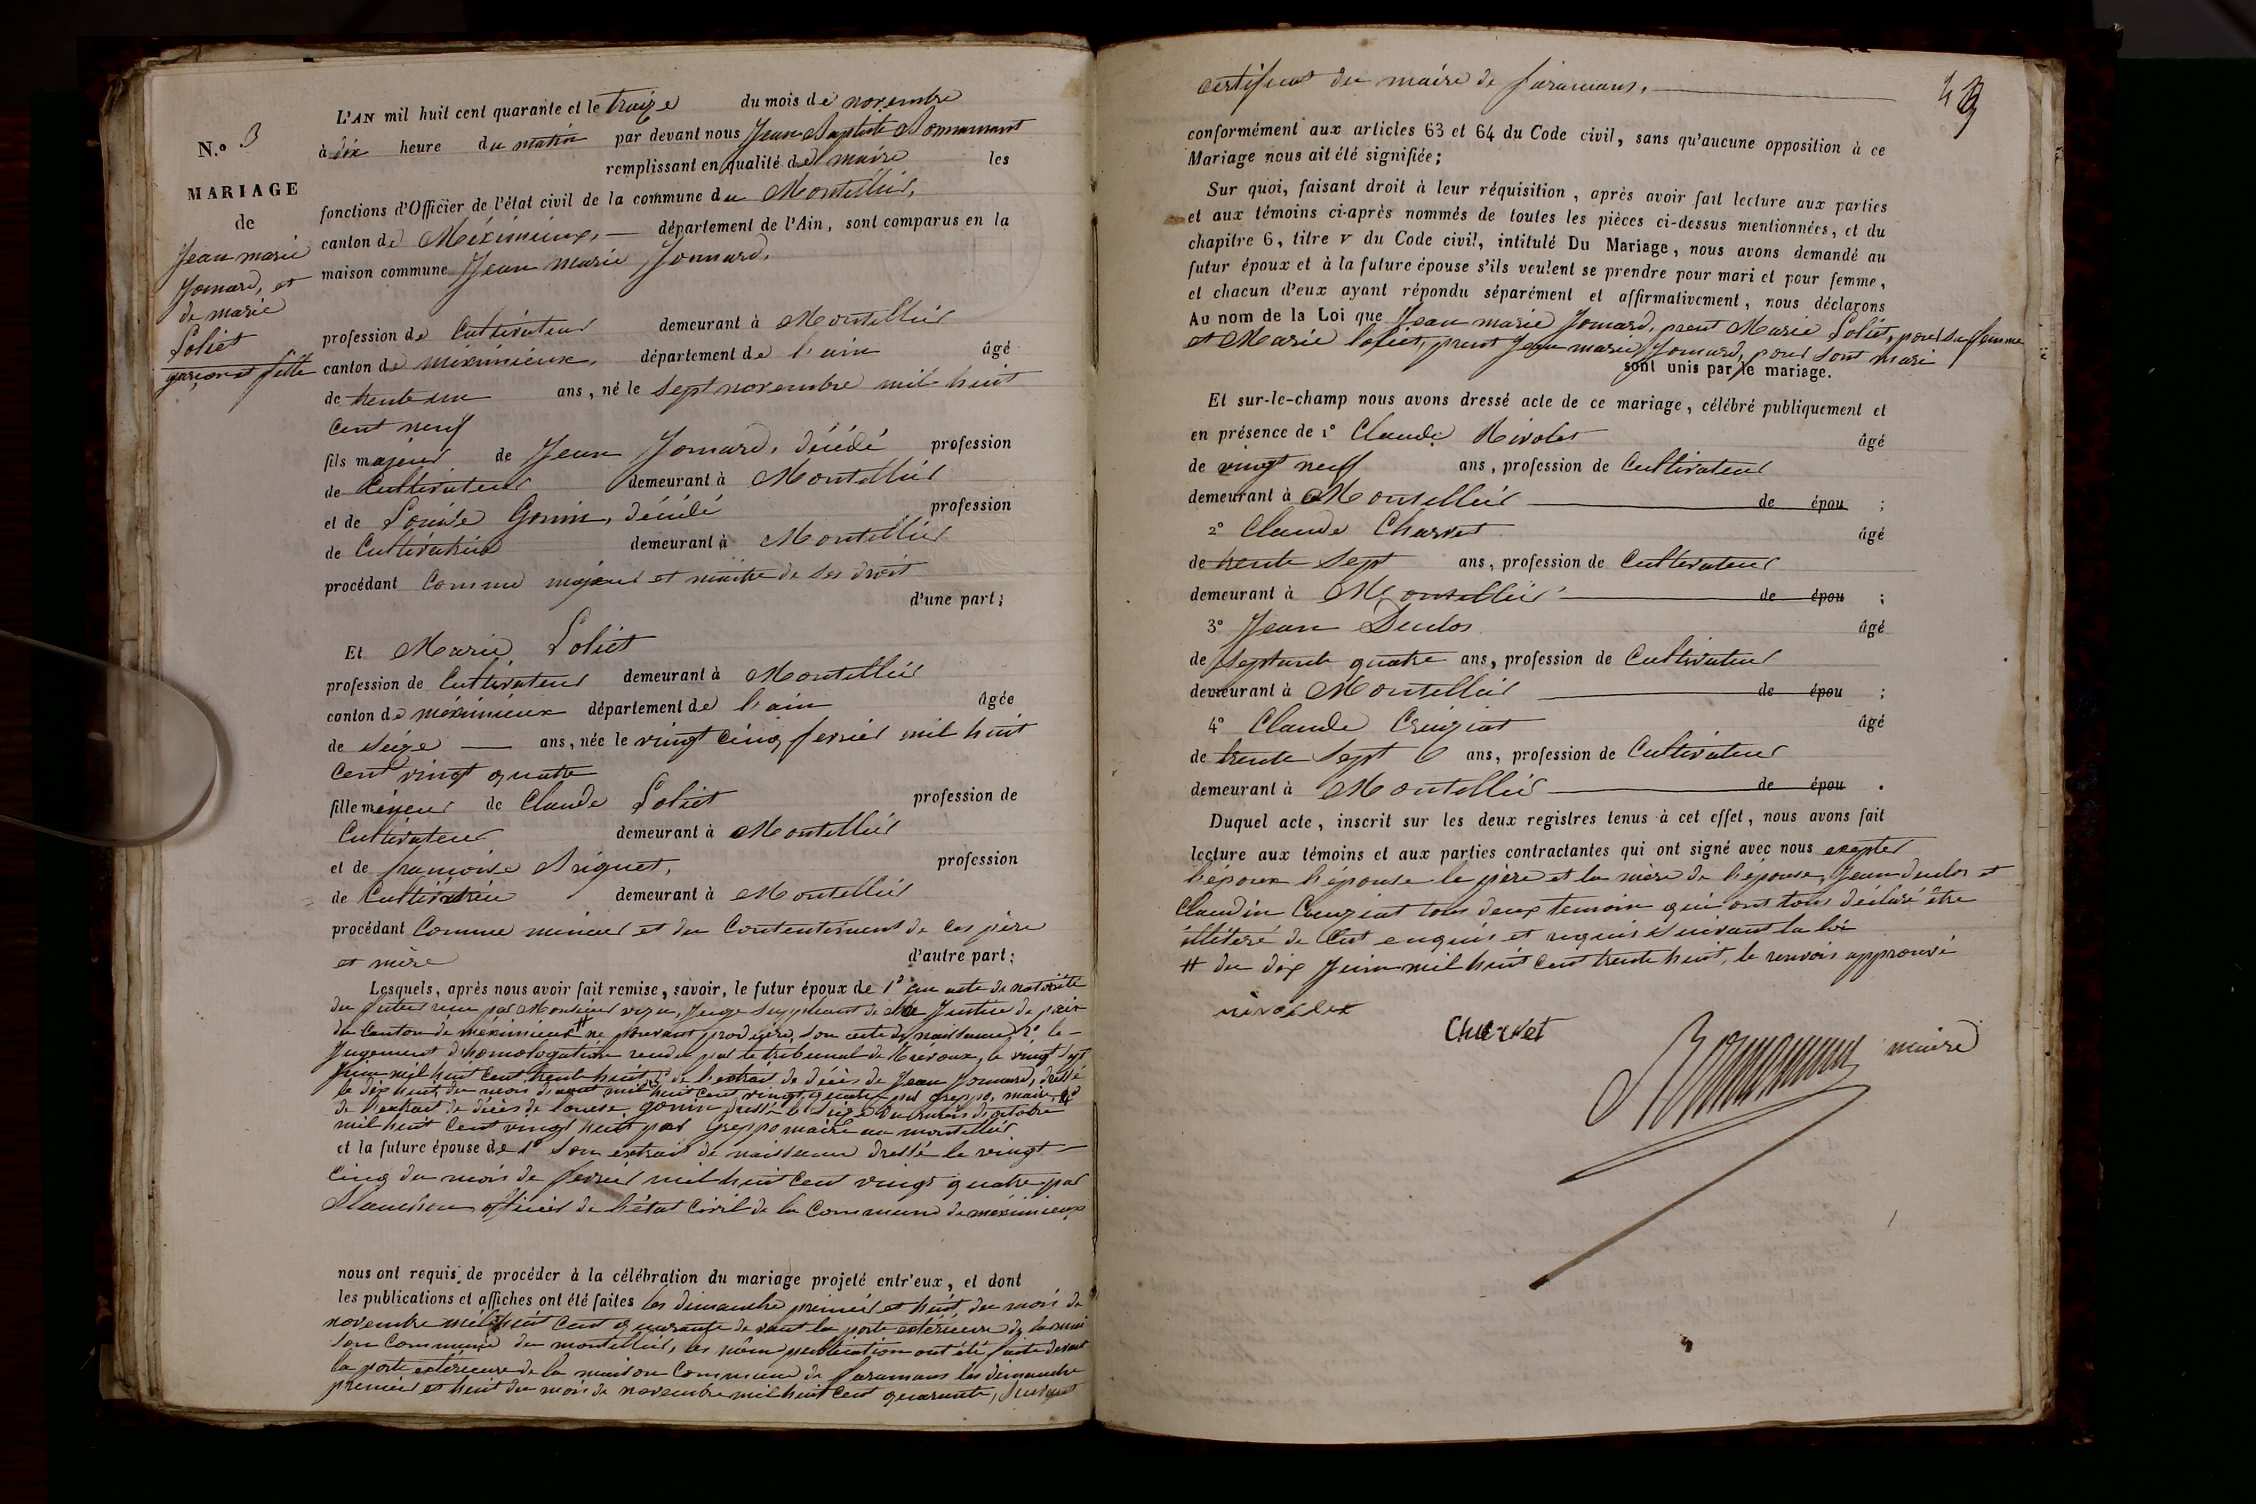 N.° 3
MARIAGE
de
Jean marie
Jomard, et
de marie
Loliet
garçon et fille
L'AN mil huit cent quarante et le treize du mois de novembre
à dix heure du matin par devant nous Jean Baptiste Bonnamant
remplissant en qualité de maire les
fonctions d'Officier de l'état civil de la commune du Montellier,
canton de Méximieux, département de l'Ain, sont comparus en la
maison commune Jean marie Jomard,
profession de Cultivateur demeurant à Montellier
canton de méximieux, département de l'ain âgé
de trente un ans, né le sept novembre mil huit
cent neuf
fils majeur de Jean Jomard, décédé profession
de Cultivateur demeurant à Montellier
et de Louise Gonin, décédé profession
de Cultivatrice demeurant à Montellier
procédant Comme majeur et maitre de ses droit
d'une part;
Et Marie Loliet
profession de Cultivateur demeurant à Montellier
canton de méximieux département de l'ain âgée
de seize ans, née le vingt cinq fevrier mil huit
cent vingt quatre
fille mineur de Claude Loliet profession de
Cultivateur demeurant à Montellier
et de françoise Briquet, profession
de Cultivatrice demeurant à Montellier
procédant Comme mineur et du Contentement de ces père
et mère d'autre part;
Lesquels, après nous avoir fait remise, savoir, le futur époux de 1° un acte de notoriété
du futur recu par Monsieur juge suppleant de la Justice de paix
du canton de méximieux # ne pouvant produire, son acte de naissance 2° le
Jugement d'homologation rendu par le tribunal de Trévoux, le vingt sept
Juin mil huit cent trente huit 3° de l'extrait de décès de Jean Jomard, dressé
le dix huit du mois d'aout mil huit cent vingt quatre par Greppo, maire, 4°
de l'extrait de décès de Louise gonin dressé le seize du mois d'octobre
mil huit cent vingt huit par Greppo maire au montellier
et la future épouse de 1° Son extrait de naissance dressé le vingt
cinq du mois de fevrier mil huit cent vingt quatre par
Blanchon officier de l'état civil de la Commune de méximieux
nous ont requis de procéder à la célébration du mariage projeté entr'eux, et dont
les publications et affiches ont été faites les dimanche premier et huit, du mois de
novembre mil huit cent quarante devant la porte extérieure de la mai
son commune du montellier, les même publication ont été faite devant
la porte extérieure de la maison Commune de faramans les dimanche
premier et huit du mois de novembre mil huit cent quarante, suivant
certificat du maire de faramans.
conformément aux articles 63 et 64 du Code civil, sans qu'aucune opposition à ce
Mariage nous ait été signifiée;
Sur quoi, faisant droit à leur réquisition, après avoir fait lecture aux parties
et aux témoins ci-après nommés de toutes les pièces ci-dessus mentionnées, et du
chapitre 6, titre V du Code civil, intitulé Du Mariage, nous avons demandé au
futur époux et à la future épouse s'ils veulent se prendre pour mari et pour femme,
et chacun d'eux ayant répondu séparément et affirmativement, nous déclarons
Au nom de la Loi que Jean marie Jomard, prent Marie Loliet, pour sa femme
et Marie loliet, prent Jean marie Jomard, pour sont mari
sont unis par le mariage.
Et sur-le-champ nous avons dressé acte de ce mariage, célébré publiquement et
en présence de 1° Claude Nivolet âgé
de vingt neuf ans, profession de Cultivateur
demeurant à Montellier de épou ;
2° Claude Charvet âgé
de trente sept ans, profession de Cultivateur
demeurant à Montellier de épou ;
3° Jean Duclos âgé
de septante quatre ans, profession de Cultivateur
demeurant à Montellier de épou ;
4° Claude Cruiziat âgé
de trente sept ans, profession de Cultivateur
demeurant à Montellier de épou .
Duquel acte, inscrit sur les deux registres tenus à cet effet, nous avons fait
lecture aux témoins et aux parties contractantes qui ont signé avec nous excepter
l'époux l'épouse le père et la mère de l'épouse, Jean duclos et
Claude Cruiziat tous deux temoin qui ont tous déclaré être
illiteré de Ceut enquis et requis suivant la loi
# du dix Juin mil huit cent trente huit, le renvois approuvé
nivollet
Charvet
Bonnamant maire